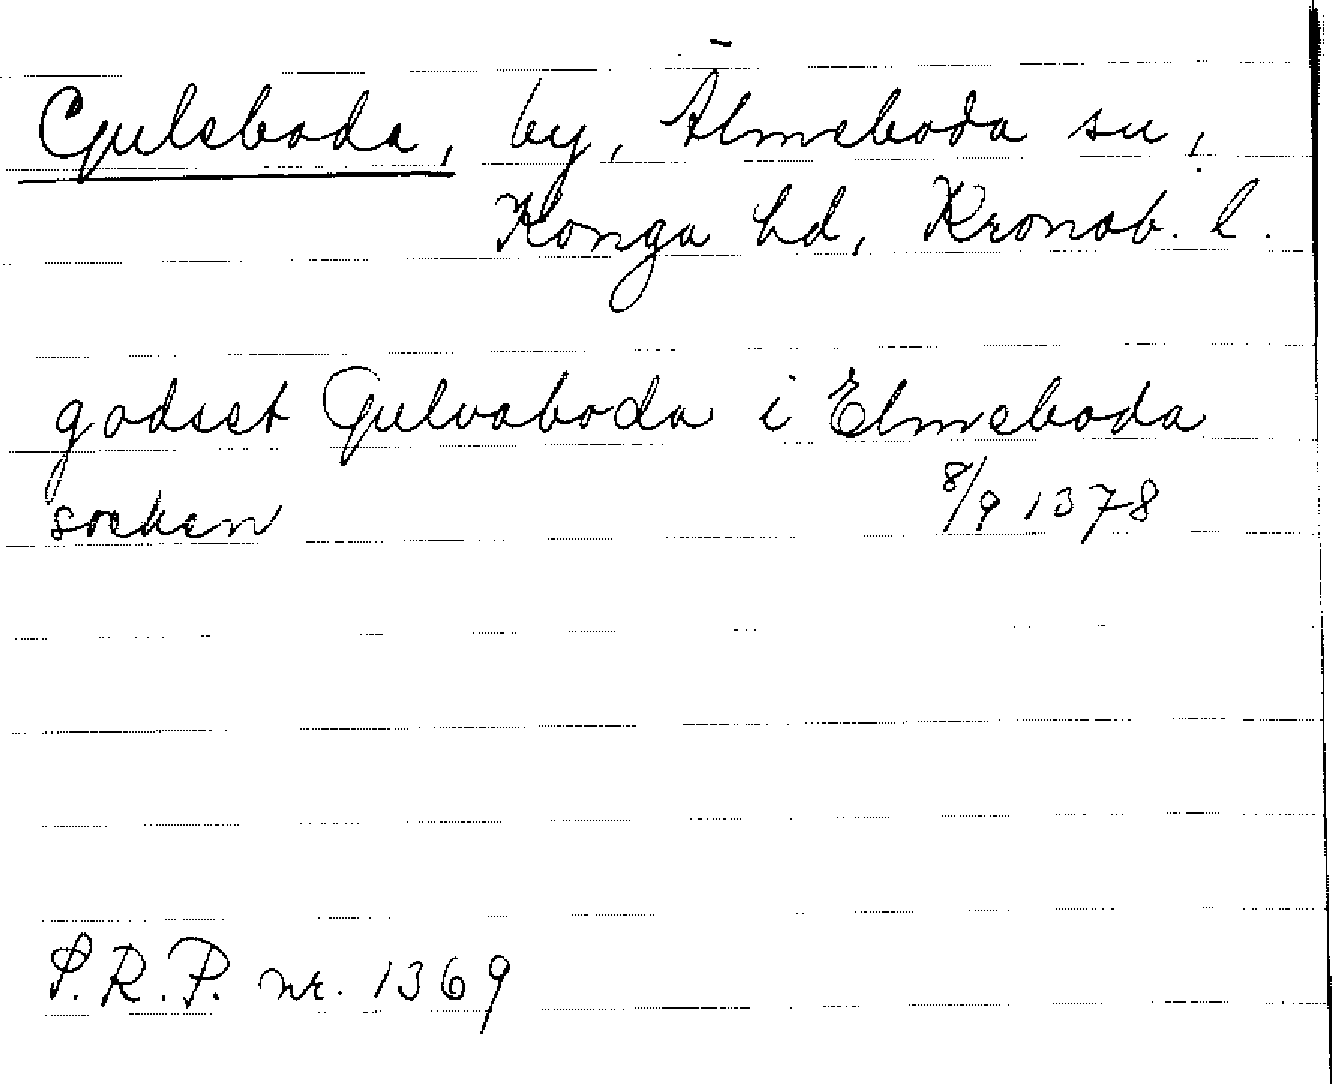 Gulsboda, by, Älmeboda sn,
Konga hd, Kronob. l.
godset Gulvaboda i Elmeboda
socken 8/9 1378
S.R.P. nr. 1369